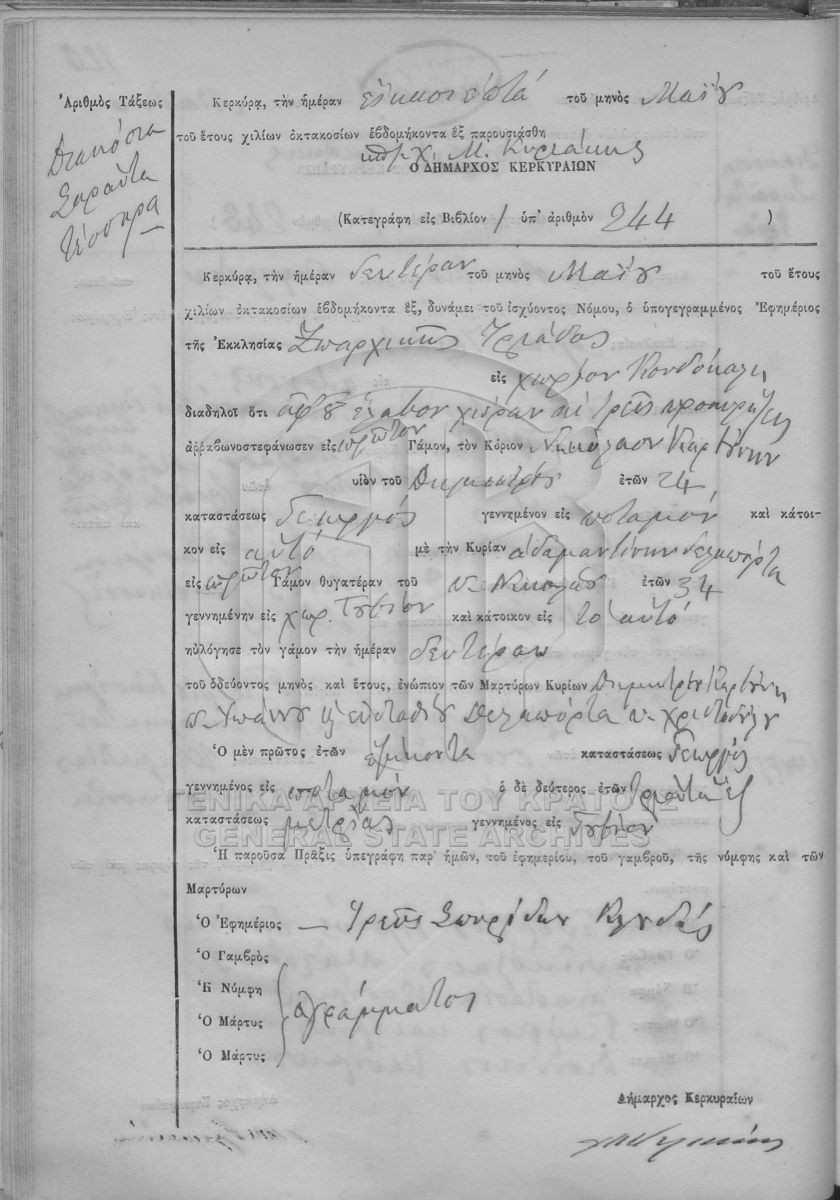 Ἀριθμὸς Τάξεως
Διακόσια
Σαράντα
τέσσαρα
Κερκύρᾳ, τὴν ἡμέραν εἴκοσι ἑπτά τοῦ μηνὸς Μαΐου
τοῦ ἔτους χιλίων ὀκτακοσίων ἑβδομήκοντα ἓξ παρουσιάσθη
Μ. Κυριάκης
Ο ΔΗΜΑΡΧΟΣ ΚΕΡΚΥΡΑΙΩΝ
(Κατεγράφη εἰς Βιβλίον 1 ὑπ' ἀριθμὸν 244 )
Κερκύρᾳ, τὴν ἡμέραν δευτέραν τοῦ μηνὸς Μαΐου τοῦ ἔτους
χιλίων ὀκτακοσίων ἑβδομήκοντα ἓξ, δυνάμει τοῦ ἰσχύοντος Νόμου, ὁ ὑπογεγραμμένος Ἐφημέριος
τῆς Ἐκκλησίας Ἐπαρχικῆς Τριάδος
εἰς χωρίον Κονδόκαλι
διαδηλοῖ ὅτι ἀφ' οὗ ἔλαβον χώραν αἱ τρεῖς προκηρύξεις
ἀῤῥαβωνοστεφάνωσεν εἰς πρῶτον Γάμον, τὸν Κύριον Νικόλαον
υἱὸν τοῦ Δημητρίου ἐτῶν 24
καταστάσεως γεωργός γεννημένον εἰς ποταμόν καὶ κάτοι-
κον εἰς αὐτό μὲ τὴν Κυρίαν ἀδαμαντίνην Δελαπόρτα
εἰς πρῶτον Γάμον θυγατέραν τοῦ Νικολάου ἐτῶν 34
γεννημένην εἰς χωρ. Γουβίον καὶ κάτοικον εἰς τὸ αὐτό
ηὐλόγησε τὸν γάμον τὴν ἡμέραν δευτέραν
τοῦ ὁδεύοντος μηνὸς καὶ ἔτους, ἐνώπιον τῶν Μαρτύρων Κυρίων Δημητρίου
Ἰωάννου καὶ εὐσταθίου Δελαπόρτα Χριστοδούλου
Ὁ μὲν πρῶτος ἐτῶν ἑξήκοντα καταστάσεως γεωργός
γεννημένος εἰς ποταμόν ὁ δὲ δεύτερος ἐτῶν τριάντα ἕξ
καταστάσεως μετρίας γεννημένος εἰς Γουβίον
ΓΕΝΙΚΑ ΑΡΧΕΙΑ ΤΟΥ ΚΡΑΤΟΥΣ
GENERAL STATE ARCHIVES
Ἡ παροῦσα Πρᾶξις ὑπεγράφη παρ' ἡμῶν, τοῦ ἐφημερίου, τοῦ γαμβροῦ, τῆς νύμφης καὶ τῶν
Μαρτύρων
Ὁ Ἐφημέριος — Ἱερεὺς Σπυρίδων
Ὁ Γαμβρὸς
Ἡ Νύμφη
ἀγράμματοι
Ὁ Μάρτυς
Ὁ Μάρτυς
Δήμαρχος Κερκυραίων